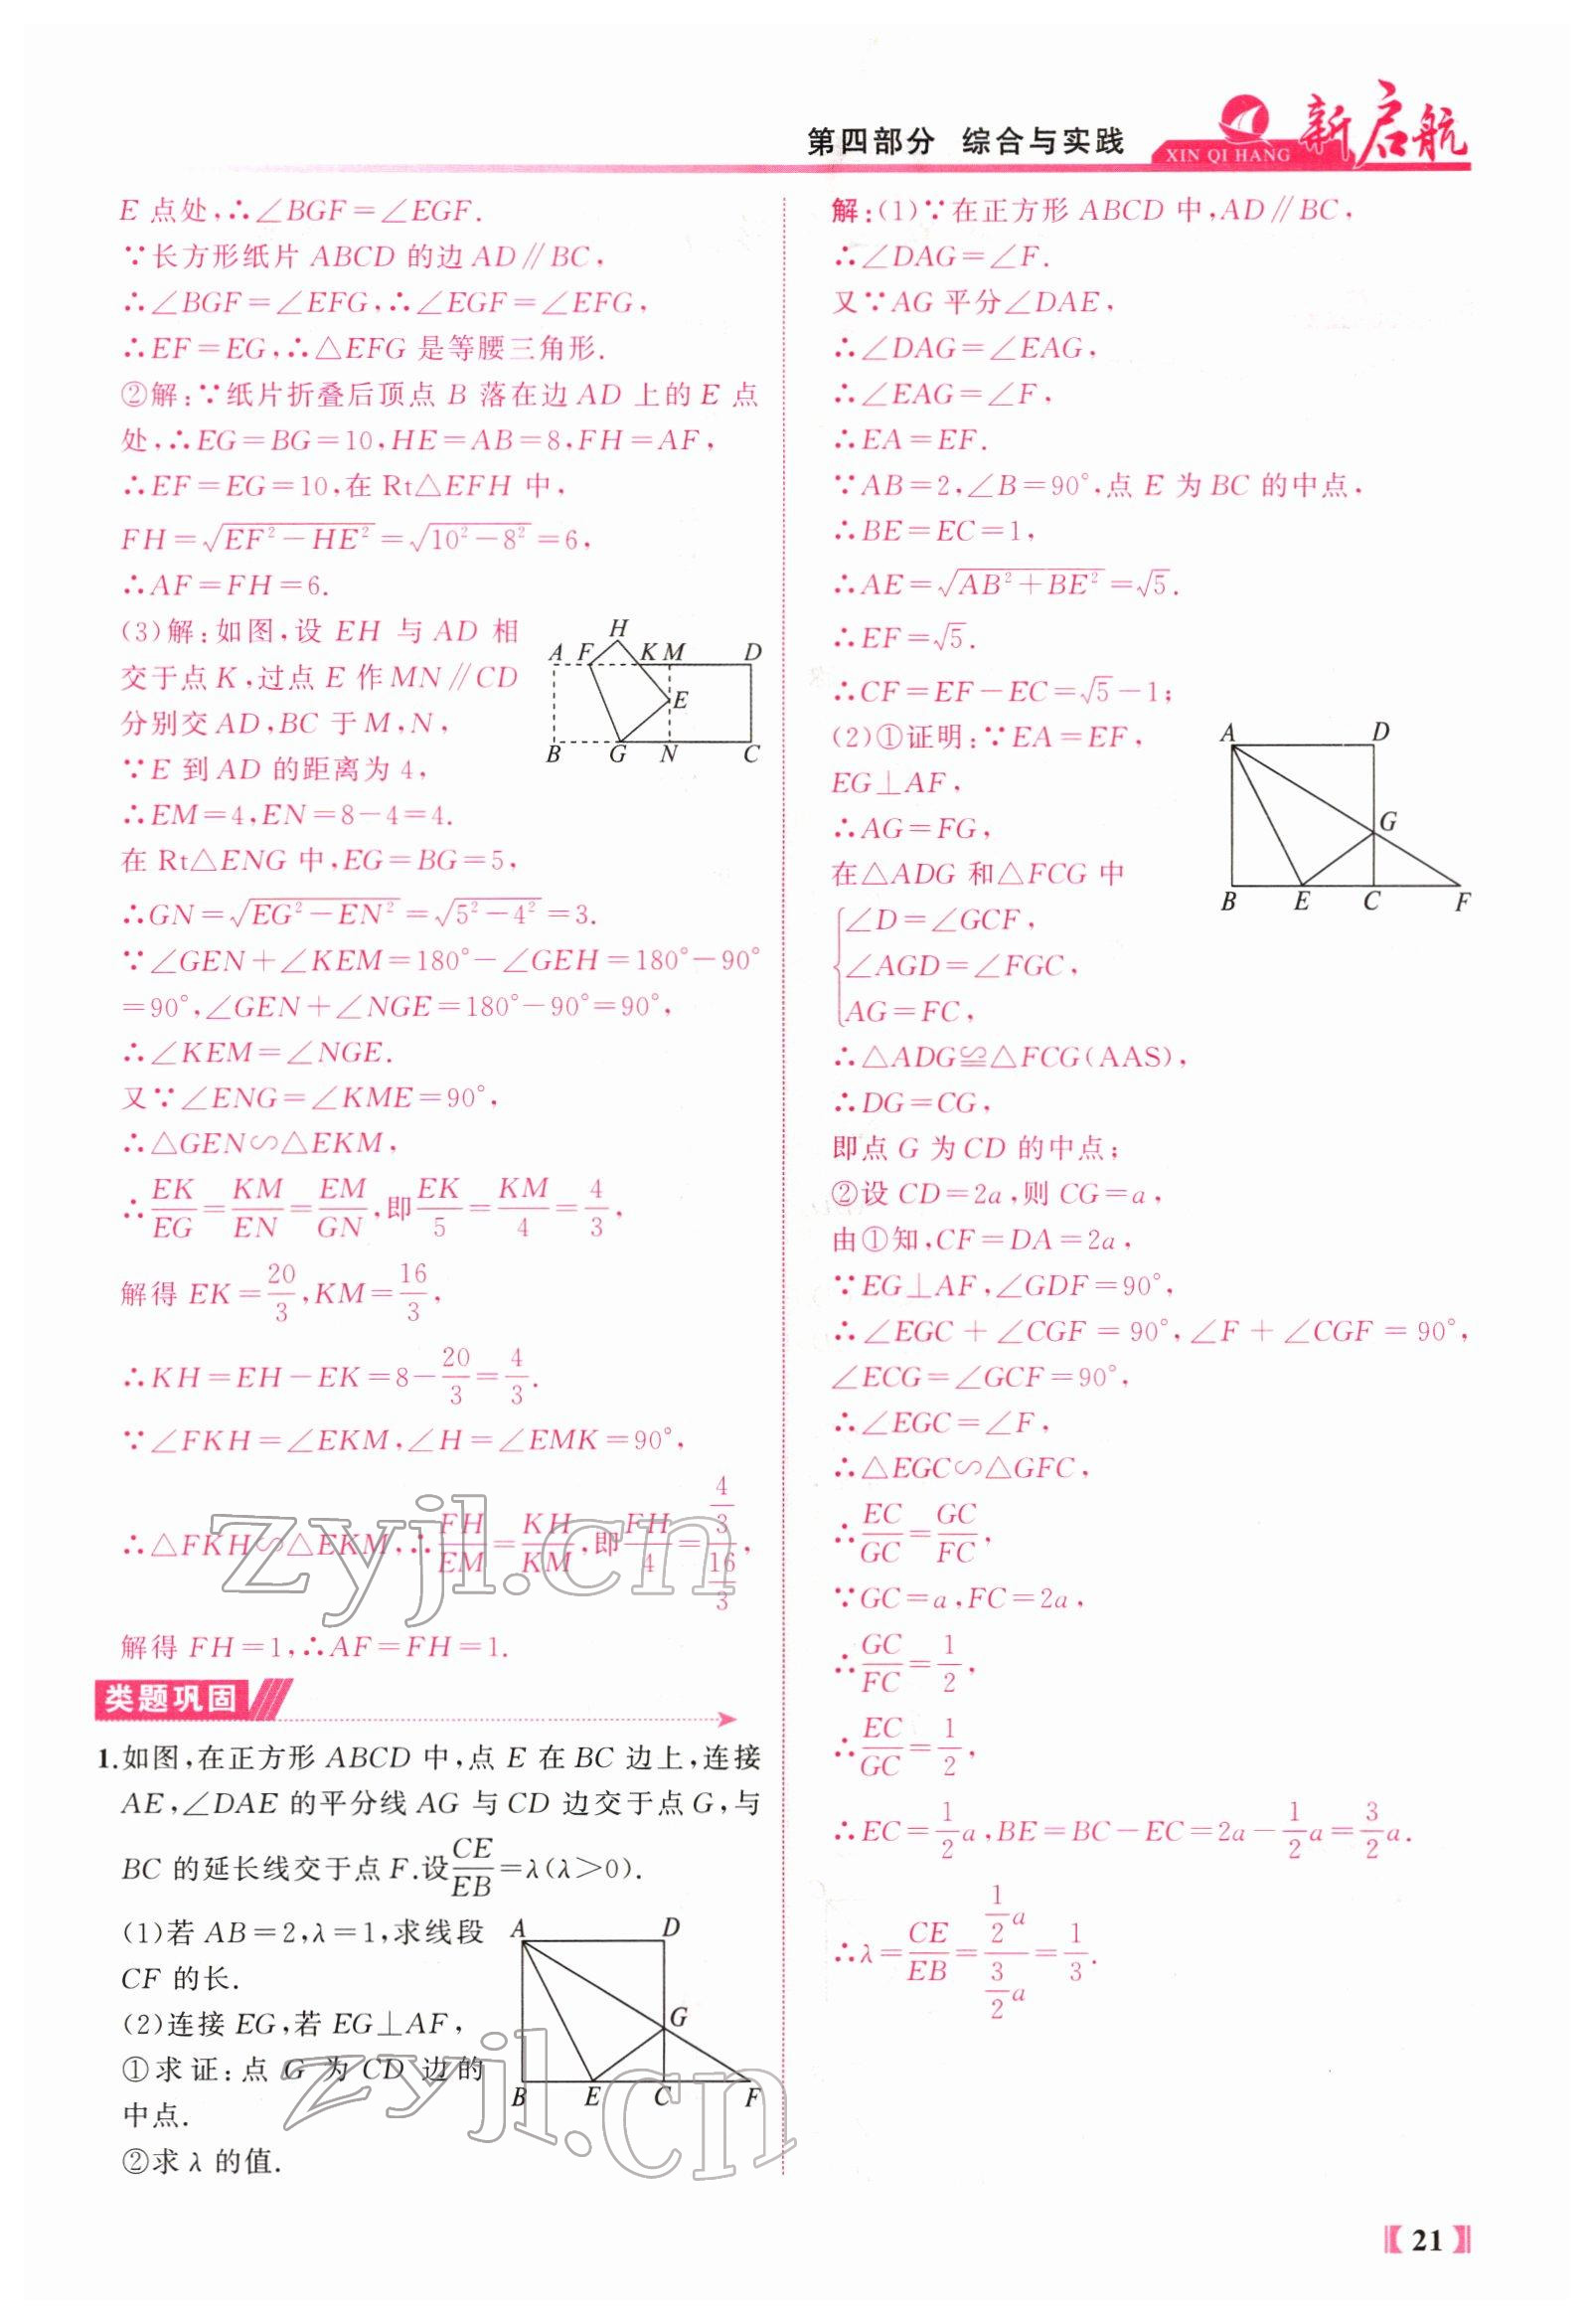 第四部分 综合与实践
XIN QI HANG 新启航
E 点处,∴∠BGF=∠EGF.
∵长方形纸片 ABCD 的边 AD∥BC,
∴∠BGF=∠EFG,∴∠EGF=∠EFG,
∴EF=EG,∴△EFG 是等腰三角形.
②解:∵纸片折叠后顶点 B 落在边 AD 上的 E 点
处,∴EG=BG=10,HE=AB=8,FH=AF,
∴EF=EG=10,在 Rt△EFH 中,
FH=√(EF²-HE²)=√(10²-8²)=6,
∴AF=FH=6.
(3)解:如图,设 EH 与 AD 相
交于点 K,过点 E 作 MN∥CD
分别交 AD,BC 于 M,N,
∵E 到 AD 的距离为 4,
∴EM=4,EN=8-4=4.
在 Rt△ENG 中,EG=BG=5,
∴GN=√(EG²-EN²)=√(5²-4²)=3.
∵∠GEN+∠KEM=180°-∠GEH=180°-90°
=90°,∠GEN+∠NGE=180°-90°=90°,
∴∠KEM=∠NGE.
又∵∠ENG=∠KME=90°,
∴△GEN∽△EKM,
∴EK/EG=KM/EN=EM/GN,即EK/5=KM/4=4/3,
解得 EK=20/3,KM=16/3,
∴KH=EH-EK=8-20/3=4/3.
∵∠FKH=∠EKM,∠H=∠EMK=90°,
∴△FKH∽△EKM,∴FH/EM=KH/KM,即FH/4=(4/3)/(16/3),
解得 FH=1,∴AF=FH=1.
H
A F K M D
E
B G N C
类题巩固
1.如图,在正方形 ABCD 中,点 E 在 BC 边上,连接
AE,∠DAE 的平分线 AG 与 CD 边交于点 G,与
BC 的延长线交于点 F.设CE/EB=λ(λ>0).
(1)若 AB=2,λ=1,求线段
CF 的长.
(2)连接 EG,若 EG⊥AF,
①求证:点 G 为 CD 边的
中点.
②求 λ 的值.
A D
G
B E C F
解:(1)∵在正方形 ABCD 中,AD∥BC,
∴∠DAG=∠F.
又∵AG 平分∠DAE,
∴∠DAG=∠EAG,
∴∠EAG=∠F,
∴EA=EF.
∵AB=2,∠B=90°,点 E 为 BC 的中点,
∴BE=EC=1,
∴AE=√(AB²+BE²)=√5.
∴EF=√5.
∴CF=EF-EC=√5-1;
(2)①证明:∵EA=EF,
EG⊥AF,
∴AG=FG,
在△ADG 和△FCG 中
∠D=∠GCF,
∠AGD=∠FGC,
AG=FC,
∴△ADG≌△FCG(AAS),
∴DG=CG,
即点 G 为 CD 的中点;
A D
G
B E C F
②设 CD=2a,则 CG=a,
由①知,CF=DA=2a,
∵EG⊥AF,∠GDF=90°,
∴∠EGC+∠CGF=90°,∠F+∠CGF=90°,
∠ECG=∠GCF=90°,
∴∠EGC=∠F,
∴△EGC∽△GFC,
∴EC/GC=GC/FC,
∵GC=a,FC=2a,
∴GC/FC=1/2,
∴EC/GC=1/2,
∴EC=1/2a,BE=BC-EC=2a-1/2a=3/2a.
∴λ=CE/EB=(1/2a)/(3/2a)=1/3.
zyjl.cn
zyjl.cn
【21】